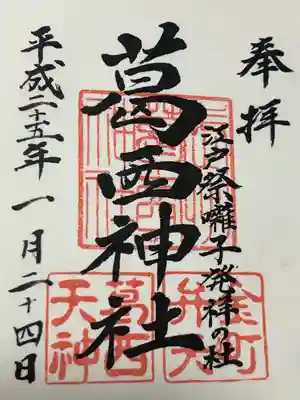 奉拝
江戸祭囃子発祥の社
葛西神社
葛西
天神
金町
平成二十五年一月二十四日